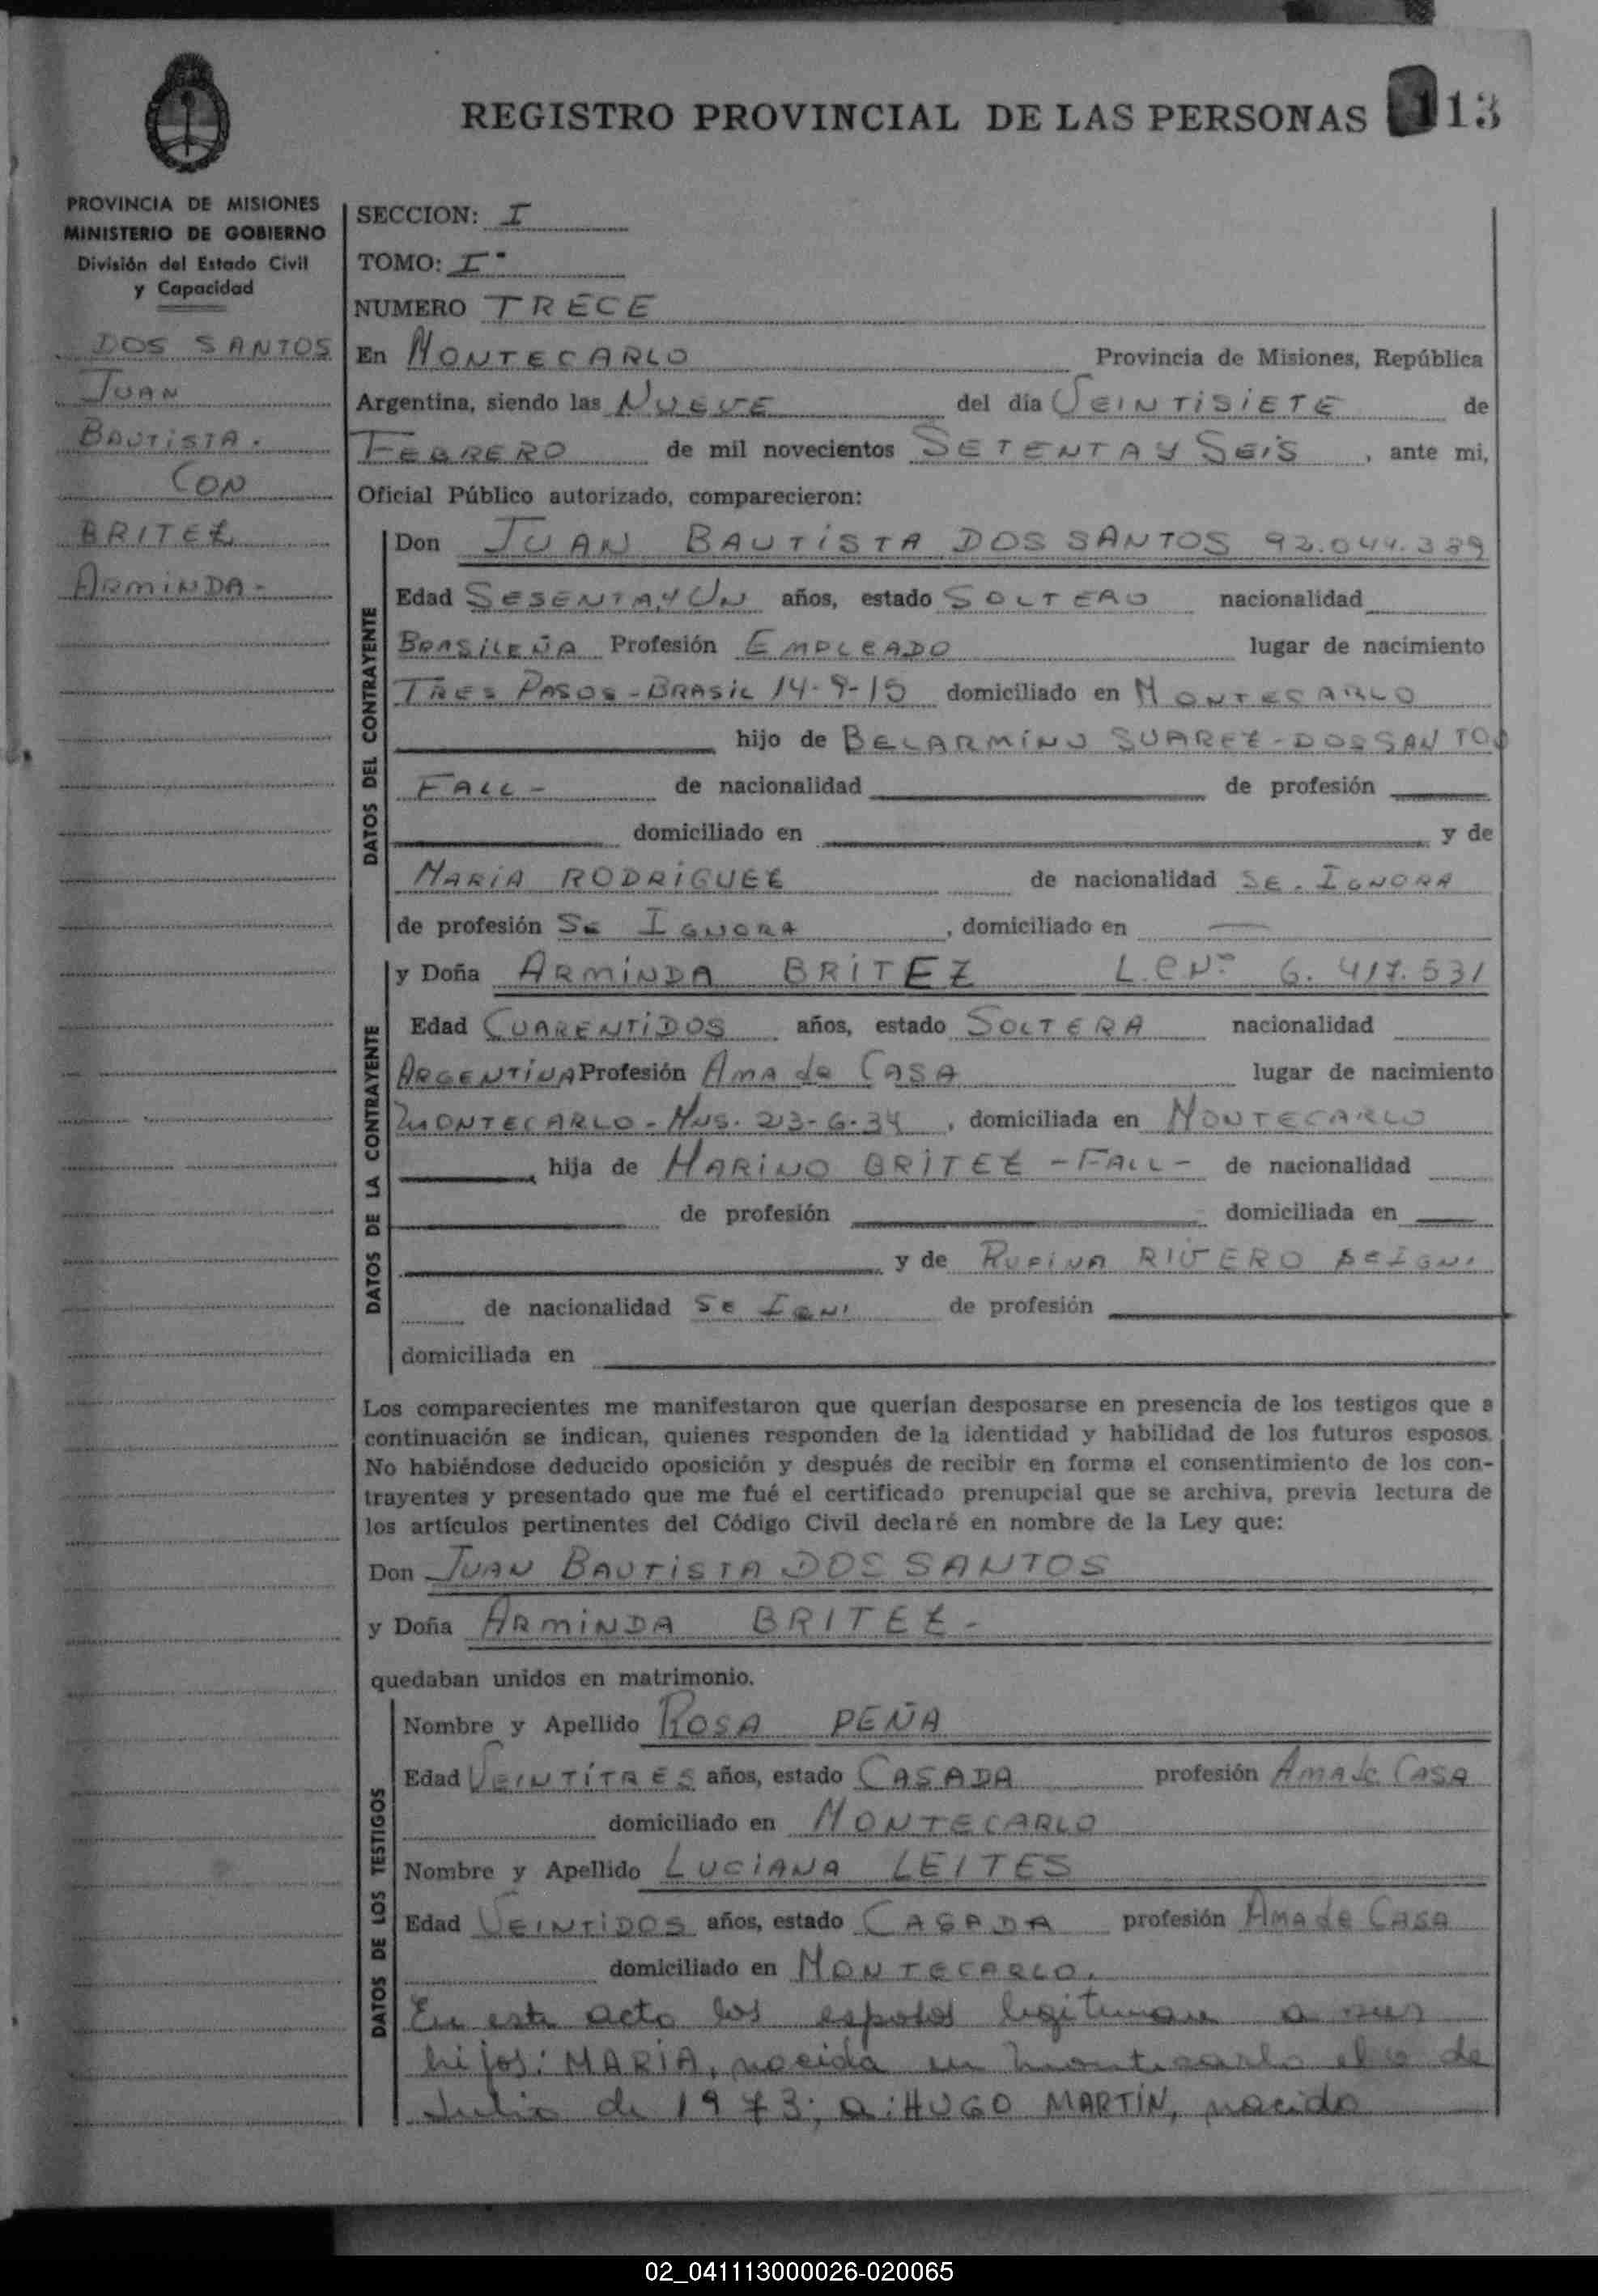 REGISTRO PROVINCIAL DE LAS PERSONAS 113
PROVINCIA DE MISIONES
MINISTERIO DE GOBIERNO
División del Estado Civil
y Capacidad
DOS SANTOS
JUAN
BAUTISTA.
CON
BRITEZ
ARMINDA-
SECCION: I
TOMO: I°
NUMERO TRECE
En MONTECARLO Provincia de Misiones, República
Argentina, siendo las NUEVE del día VEINTISIETE de
FEBRERO de mil novecientos SETENTA Y SEIS, ante mi,
Oficial Público autorizado, comparecieron:
DATOS DEL CONTRAYENTE
Don JUAN BAUTISTA DOS SANTOS 92.044.389
Edad SESENTA Y UN años, estado SOLTERO nacionalidad
BRASILEÑA Profesión EMPLEADO lugar de nacimiento
TRES PASOS-BRASIL 14-9-15 domiciliado en MONTECARLO
hijo de BELARMINO SUAREZ-DOS SANTOS
FALL- de nacionalidad de profesión
domiciliado en y de
MARIA RODRIGUEZ de nacionalidad SE. IGNORA
de profesión SE IGNORA, domiciliado en
DATOS DE LA CONTRAYENTE
y Doña ARMINDA BRITEZ L.C N° 6.417.531
Edad CUARENTIDOS años, estado SOLTERA nacionalidad
ARGENTINA Profesión AMA de CASA lugar de nacimiento
MONTECARLO-MNS. 23-6-34, domiciliada en MONTECARLO
hija de MARINO BRITEZ -FALL- de nacionalidad
de profesión domiciliada en
y de RUFINA RIVERO SE IGN.
de nacionalidad SE IGN. de profesión
domiciliada en
Los comparecientes me manifestaron que querían desposarse en presencia de los testigos que a
continuación se indican, quienes responden de la identidad y habilidad de los futuros esposos.
No habiéndose deducido oposición y después de recibir en forma el consentimiento de los con-
trayentes y presentado que me fué el certificado prenupcial que se archiva, previa lectura de
los artículos pertinentes del Código Civil declaré en nombre de la Ley que:
Don JUAN BAUTISTA DOS SANTOS
y Doña ARMINDA BRITEZ-
quedaban unidos en matrimonio.
DATOS DE LOS TESTIGOS
Nombre y Apellido ROSA PEÑA
Edad VEINTITRES años, estado CASADA profesión AMA de CASA
domiciliado en MONTECARLO
Nombre y Apellido LUCIANA LEITES
Edad VEINTIDOS años, estado CASADA profesión AMA de CASA
domiciliado en MONTECARLO.
En este acto los esposos legitiman a sus
hijos: MARIA, nacida en Montecarlo el de
Julio de 1973; a: HUGO MARTÍN, nacido
02_041113000026-020065